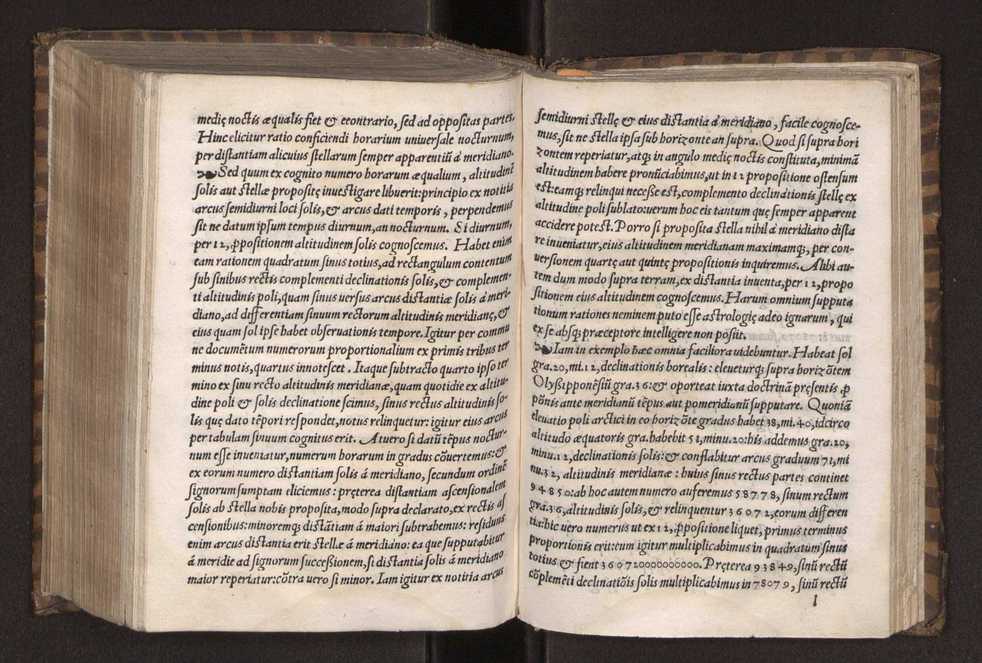 medię noctis æqualis fiet & econtrario, sed ad oppositas partes.
Hinc elicitur ratio conficiendi horarium uniuersale nocturnum,
per distantiam alicuius stellarum semper apparentiū á meridiano.
Sed quum ex cognito numero horarum æqualium, altitudinē
solis aut stellæ propositę inuestigare libuerit: principio ex notitia
arcus semidiurni loci solis, & arcus dati temporis, perpendemus
sit ne datum ipsum tempus diurnum, an nocturnum. Si diurnum,
per 12, ꝓpositionem altitudinem solis cognoscemus. Habet enim
eam rationem quadratum sinus totius, ad rectangulum contentum
sub sinibus rectis complementi declinationis solis, & complemen-
ti altitudinis poli, quam sinus uersus arcus distantiæ solis á meri-
diano, ad differentiam sinuum rectorum altitudinis meridianę, &
eius quam sol ipse habet obseruationis tempore. Igitur per commu
ne documētum numerorum proportionalium ex primis tribus ter
minus notis, quartus innotescet. Itaque subtracto quarto ipso ter
mino ex sinu recto altitudinis meridianæ, quam quotidie ex altitu-
dine poli & solis declinatione scimus, sinus rectus altitudinis so-
lis quę dato tēpori respondet, notus relinquetur: igitur eius arcus
per tabulam sinuum cognitus erit. At uero si datū tēpus noctur-
num esse inueniatur, numerum horarum in gradus cōuertemus: &
ex eorum numero distantiam solis á meridiano, secundum ordinē
signorum sumptam eliciemus: pręterea distantiam ascensionalem
solis ab stella nobis proposita, modo supra declarato, ex rectis as
censionibus: minoremq; distātiam á maiori subtrahemus: residuus
enim arcus distantia erit stellæ á meridiano: ea que supputabitur
á meridie ad signorum successionem, si distantia solis á meridiano
maior reperiatur: cōtra uero si minor. Iam igitur ex notitia arcus
semidiurni stellę & eius distantia á meridiano, facile cognosce-
mus, sit ne stella ipsa sub horizonte an supra. Quod si supra hori
zontem reperiatur, atq; in angulo medię noctis constituta, minimā
altitudinem habere pronūciabimus, ut in 12 propositione ostensum
est: eamq; relinqui necesse est, complemento declinationis stellę ex
altitudine poli sublato: uerum hoc eis tantum quę semper apparent
accidere potest. Porro si proposita stella nihil á meridiano dista
re inueniatur, eius altitudinem meridianam maximamq;, per con-
uersionem quartę aut quintę propositionis inquiremus. Alibi au-
tem dum modo supra terram, ex distantia inuenta, per 12, propo
sitionem eius altitudinem cognoscemus. Harum omnium supputa
tionum rationes neminem puto esse astrologię adeo ignarum, qui
ex se absq; præceptore intelligere non possit.
Iam in exemplo hæc omnia faciliora uidebuntur. Habeat sol
gra. 20, mi. 12, declinationis borealis: eleueturq; supra horizōtem
Olyssipponēsiū gra. 36: & oporteat iuxta doctrinā pręsentis ꝓ
pōnis ante meridianū tēpus aut pomeridianū supputare. Quoniā
eleuatio poli arctici in eo horizōte gradus habet 38, mi. 40, idcirco
altitudo æquatoris gra. habebit 51, minu. 20: his addemus gra. 20,
minu. 12, declinationis solis: & conflabitur arcus graduum 71, mi
nu. 32, altitudinis meridianæ: huius sinus rectus partes continet
94850: ab hoc autem numero auferemus 58778, sinum rectum
gra. 36, altitudinis solis, & relinquentur 36072, eorum differen
tia: hic uero numerus ut ex 12, ꝓpositione liquet, primus terminus
proportionis erit: eum igitur multiplicabimus in quadratum sinus
totius & fient 360720000000000. Pręterea 93849, sinū rectū
cōplemēti declinatiōis solis multiplicabimus in 78079, sinū rectū
l